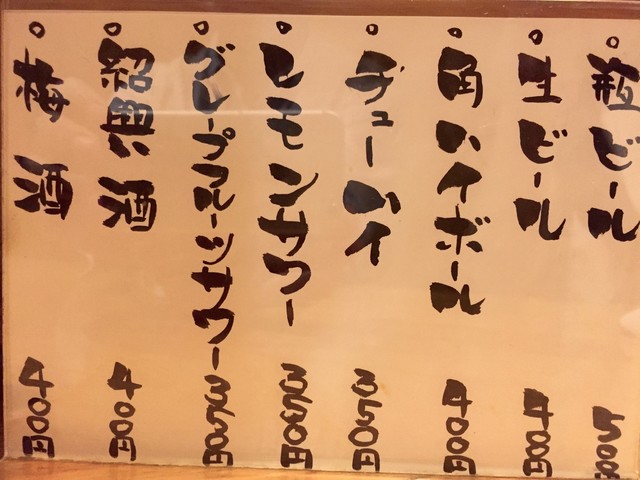 ○瓶ビール 500円
○生ビール 400円
○角ハイボール 400円
○チューハイ 350円
○レモンサワー 350円
○グレープフルーツサワー 350円
○紹興酒 400円
○梅酒 400円